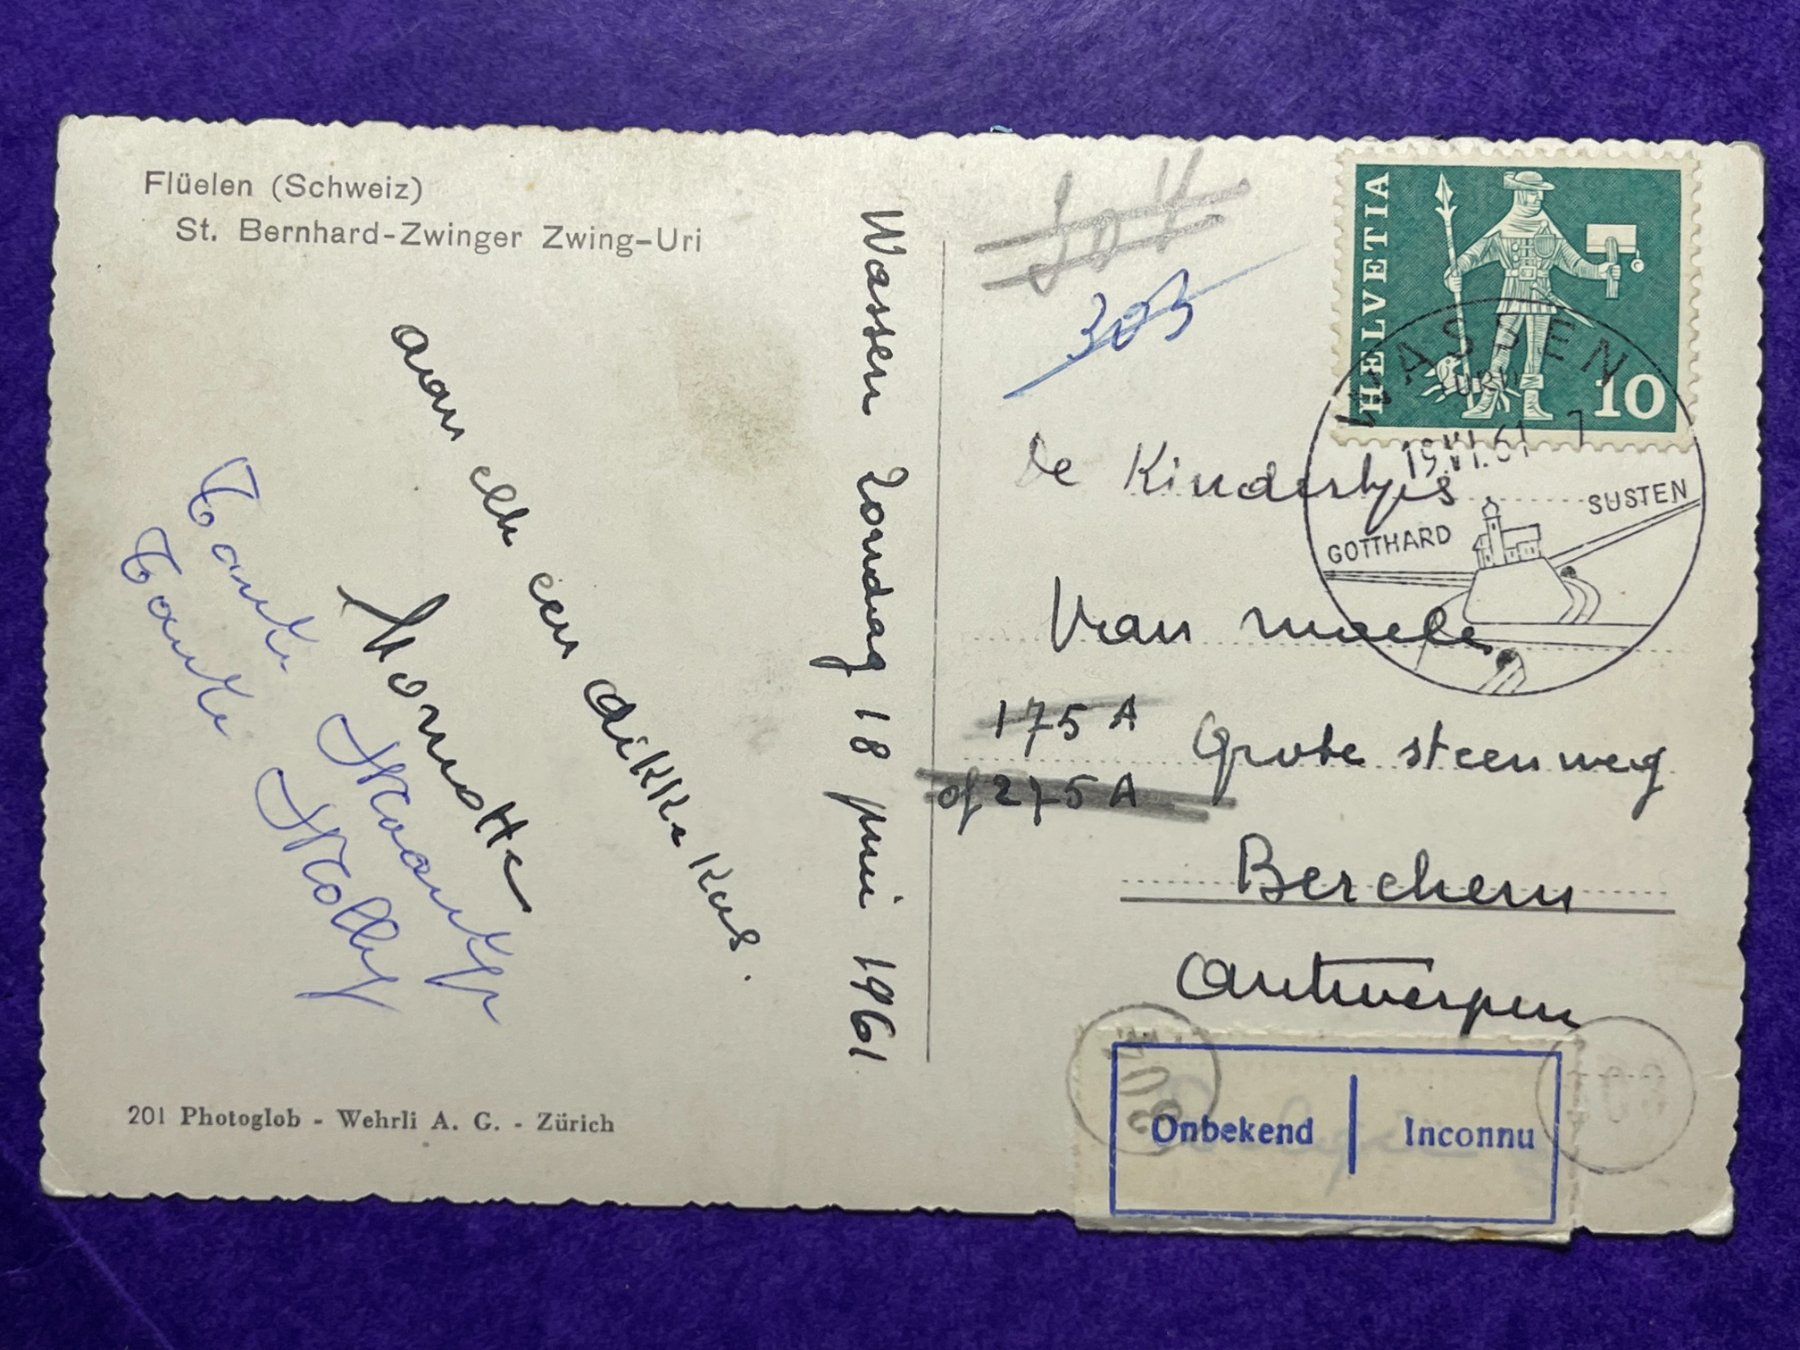 Flüelen (Schweiz)
St. Bernhard-Zwinger Zwing-Uri
Wassen Zondag 18 juni 1961
aan elk een dikke kus.
Nonotte
Tante
Tante Molly
201 Photoglob - Wehrli A. G. - Zürich
303
HELVETIA
10
WASSEN
(URI)
19.VI.61 7
GOTTHARD
SUSTEN
de Kindertjes
Van
175 A
Grote steenweg
of 275 A
Berchem
Antwerpen
Onbekend | Inconnu